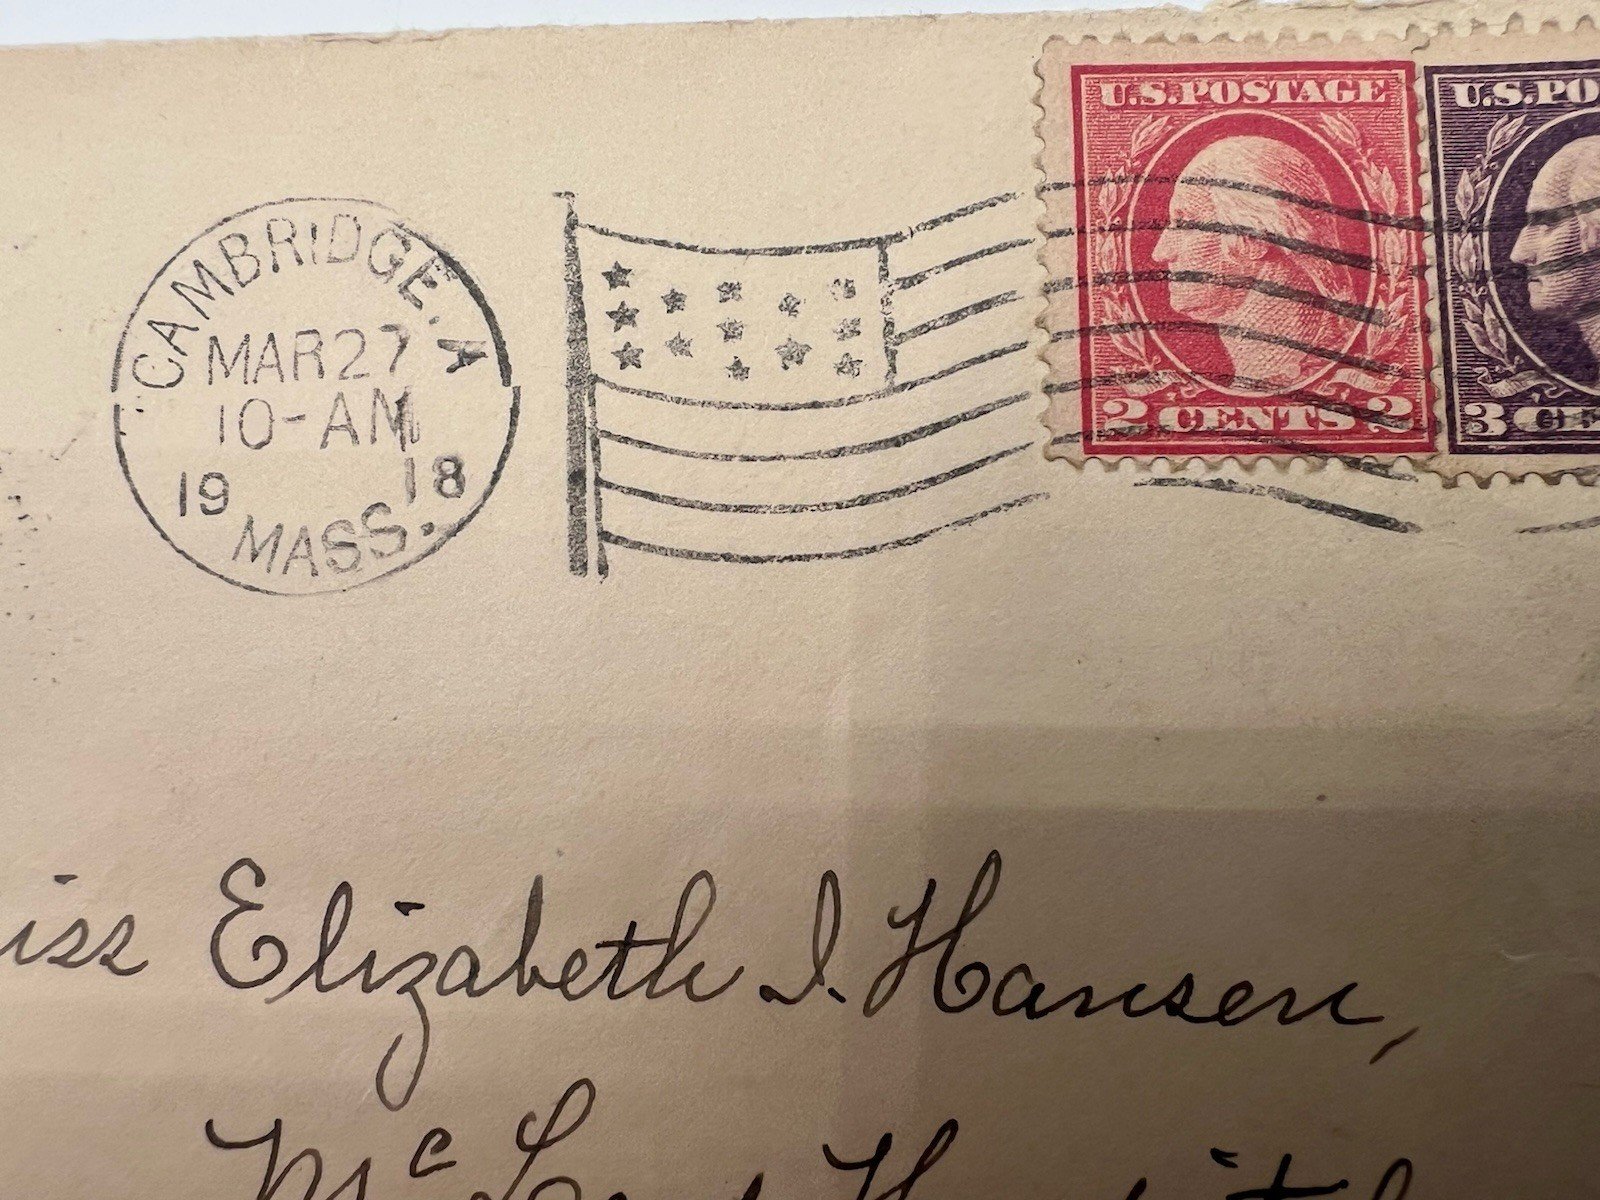 CAMBRIDGE. A
MAR 27
10-AM
19 18
MASS.
U.S. POSTAGE
2 CENTS 2
U.S. PO
3 CE
iss Elizabeth I. Hansen,
Mc